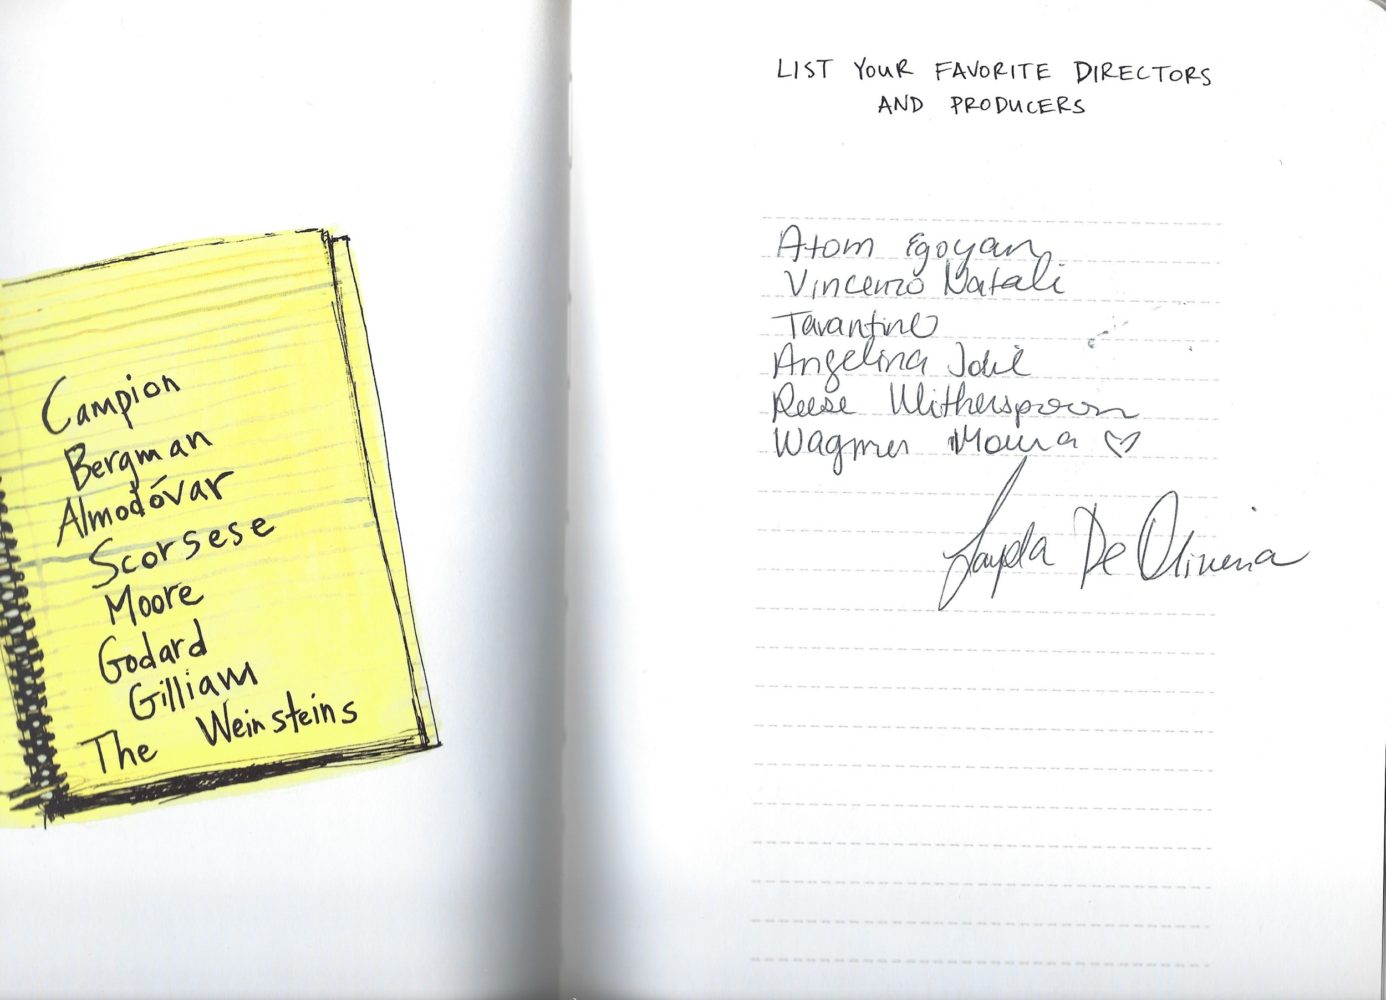 Campion
Bergman
Almodóvar
Scorsese
Moore
Godard
Gilliam
The Weinsteins
LIST YOUR FAVORITE DIRECTORS
AND PRODUCERS
Atom Egoyan
Vincenzo Natali
Tarantino
Angelina Jolie
Reese Witherspoon
Wagner Moura
De Oliveira